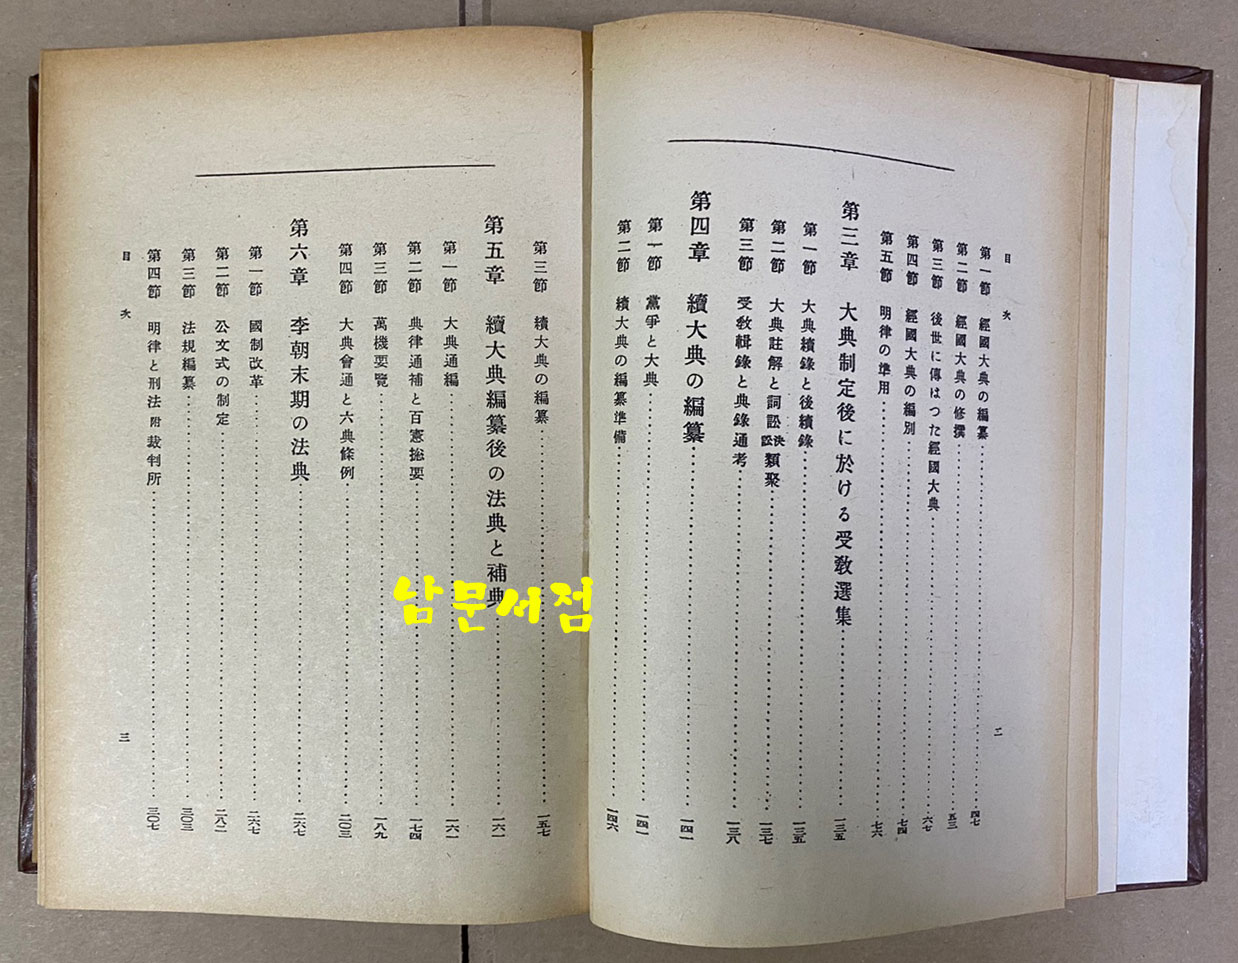 目次
第一節 經國大典の編纂 四七
第二節 經國大典の修撰 五三
第三節 後世に傳はつた經國大典 六七
第四節 經國大典の編別 七四
第五節 明律の準用 七六
第三章 大典制定後に於ける受敎選集 一三五
第一節 大典續錄と後續錄 一三五
第二節 大典註解と詞訟決訟類聚 一三七
第三節 受敎輯錄と典錄通考 一三八
第四章 續大典の編纂 一四一
第一節 黨爭と大典 一四一
第二節 續大典の編纂準備 一四六
二
第三節 續大典の編纂 一五七
第五章 續大典編纂後の法典と補典 一六一
第一節 大典通編 一六一
第二節 典律通補と百憲摠要 一七四
第三節 萬機要覽 一八九
第四節 大典會通と六典條例 二〇三
第六章 李朝末期の法典 二六七
第一節 國制改革 二六七
第二節 公文式の制定 二八二
第三節 法規編纂 三〇三
第四節 明律と刑法 附 裁判所 三〇七
目次
三
남문서점